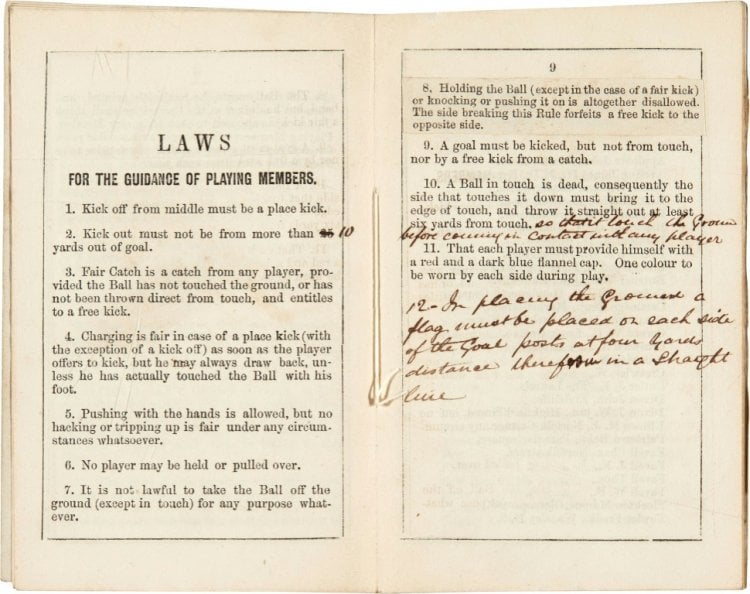 LAWS
FOR THE GUIDANCE OF PLAYING MEMBERS.
1. Kick off from middle must be a place kick.
2. Kick out must not be from more than 25 10
yards out of goal.
3. Fair Catch is a catch from any player, pro-
vided the Ball has not touched the ground, or has
not been thrown direct from touch, and entitles
to a free kick.
4. Charging is fair in case of a place kick (with
the exception of a kick off) as soon as the player
offers to kick, but he may always draw back, un-
less he has actually touched the Ball with his
foot.
5. Pushing with the hands is allowed, but no
hacking or tripping up is fair under any circum-
stances whatsoever.
6. No player may be held or pulled over.
7. It is not lawful to take the Ball off the
ground (except in touch) for any purpose what-
ever.
9
8. Holding the Ball (except in the case of a fair kick)
or knocking or pushing it on is altogether disallowed.
The side breaking this Rule forfeits a free kick to the
opposite side.
9. A goal must be kicked, but not from touch,
nor by a free kick from a catch.
10. A Ball in touch is dead, consequently the
side that touches it down must bring it to the
edge of touch, and throw it straight out at least
six yards from touch. so that it touch the Ground
before coming in Contact with any player
11. That each player must provide himself with
a red and a dark blue flannel cap. One colour to
be worn by each side during play.
12 - In placing the Ground a
flag must be placed on each side
of the Goal posts at four Yards
distance therefrom in a Straight
line